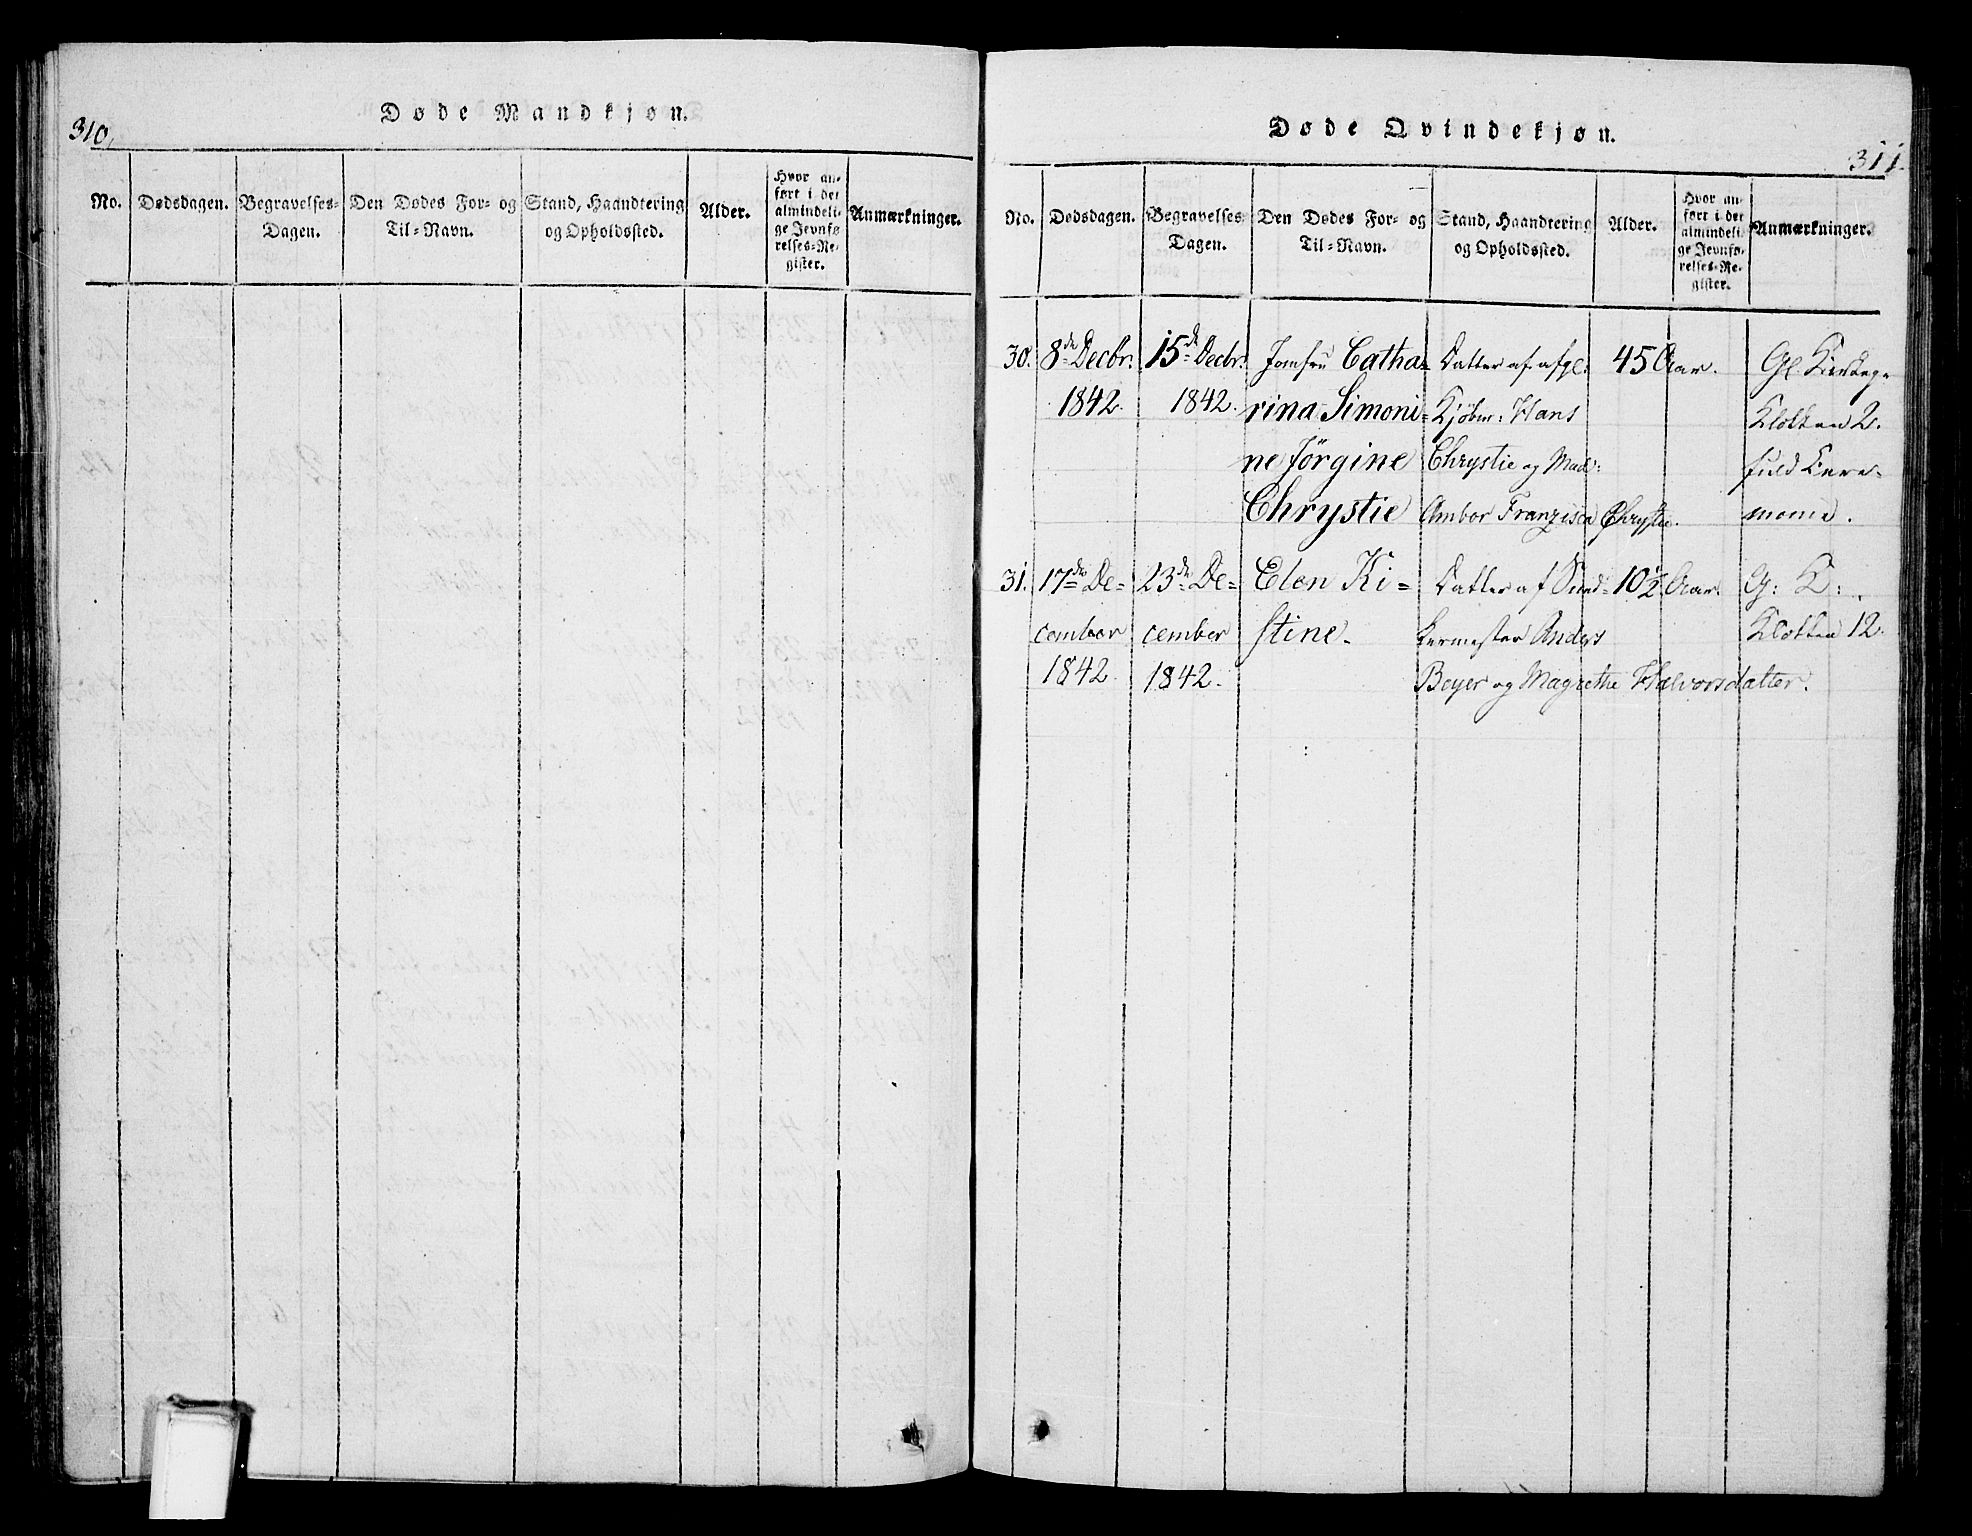 310.
Døde Mandkjøn.
No.
Dødsdagen.
Begravelses-
Dagen.
Den Dødes For- og
Til-Navn.
Stand, Haandtering
og Opholdssted.
Alder.
Hvor an-
ført i det
almindeli-
ge Jevnfø-
relses-Re-
gister.
Anmærkninger.
Døde Qvindekjøn.
311.
No.
Dødsdagen.
Begravelses
Dagen.
Den Dødes For- og
Til-Navn.
Stand, Haandtering
og Opholdssted.
Alder.
Hvor an-
ført i det
almindeli-
ge Jevnfø-
relses-Re-
gister.
Anmærkninger.
30.
8de Decbr.
1842.
15de Decbr.
1842.
Jomfru Catha-
rina Simoni-
ne Jörgine
Chrystie
Datter af afgl:
Kjöbm: Hans
Chrystie og Mad:
Ambor Franzisca Chrystie.
45 Aar.
Gl Kirkeg.
Klokken 2.
fuld Cere-
monie.
31.
17de De-
cember
1842.
23de De-
cember
1842.
Elen Ki-
stine.
Datter af
Anders
Beyer og Magrethe Halvorsdatter.
10 1/2 Aar.
G: K:
Klokken 12.